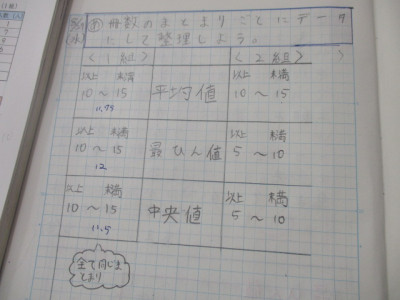 め 冊数のまとまりごとにデータ
にして整理しよう。
〈1組〉 〈2組〉
以上 未満 以上 未満
10 ～ 15 平均値 10 ～ 15
11.75
以上 未満 以上 未満
10 ～ 15 最ひん値 5 ～ 10
12
以上 未満 以上 未満
10 ～ 15 中央値 5 ～ 10
11.5
全て同じま
とまり